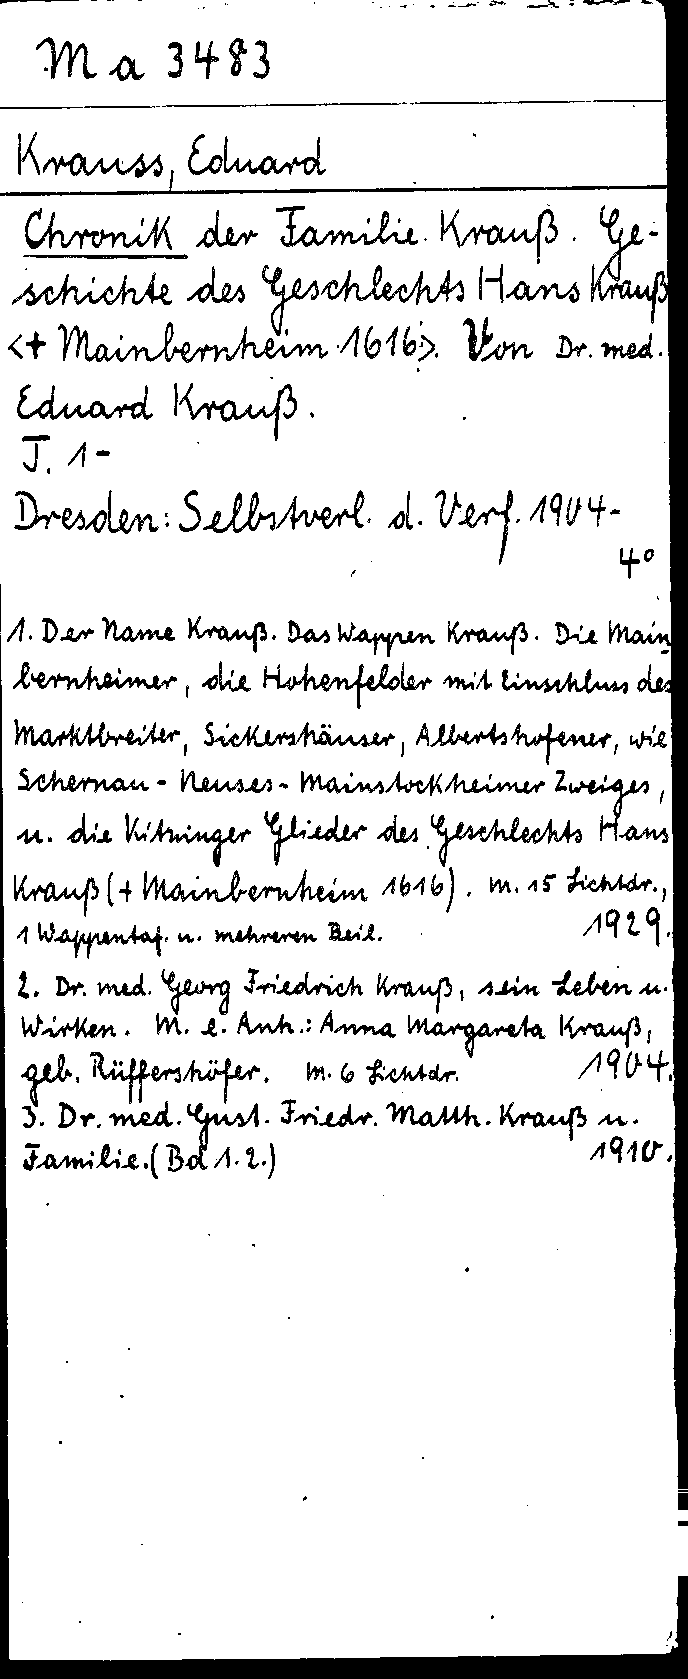 M a 3483
Krauss, Eduard
Chronik der Familie Krauß. Ge-
schichte des Geschlechts Hans Krauß
<+ Mainbernheim 1616>. Von Dr. med.
Eduard Krauß.
T. 1-
Dresden: Selbstverl. d. Verf. 1904-
4°
1. Der Name Krauß. Das Wappen Krauß. Die Main-
bernheimer, die Hohenfelder mit Einschluss des
Marktbreiter, Sickershäuser, Albertshofener, wie
Schernau-Neuses-Mainstockheimer Zweiges,
u. die Kitzinger Glieder des Geschlechts Hans
Krauß (+ Mainbernheim 1616). M. 15 Lichtdr.,
1 Wappentaf. u. mehreren Beil. 1929.
2. Dr. med. Georg Friedrich Krauß, sein Leben u.
Wirken. M. e. Anh.: Anna Margareta Krauß,
geb. Rüffershöfer. M. 6 Lichtdr. 1904.
3. Dr. med. Gust. Friedr. Matth. Krauß u.
Familie. (Bd 1. 2.) 1910.